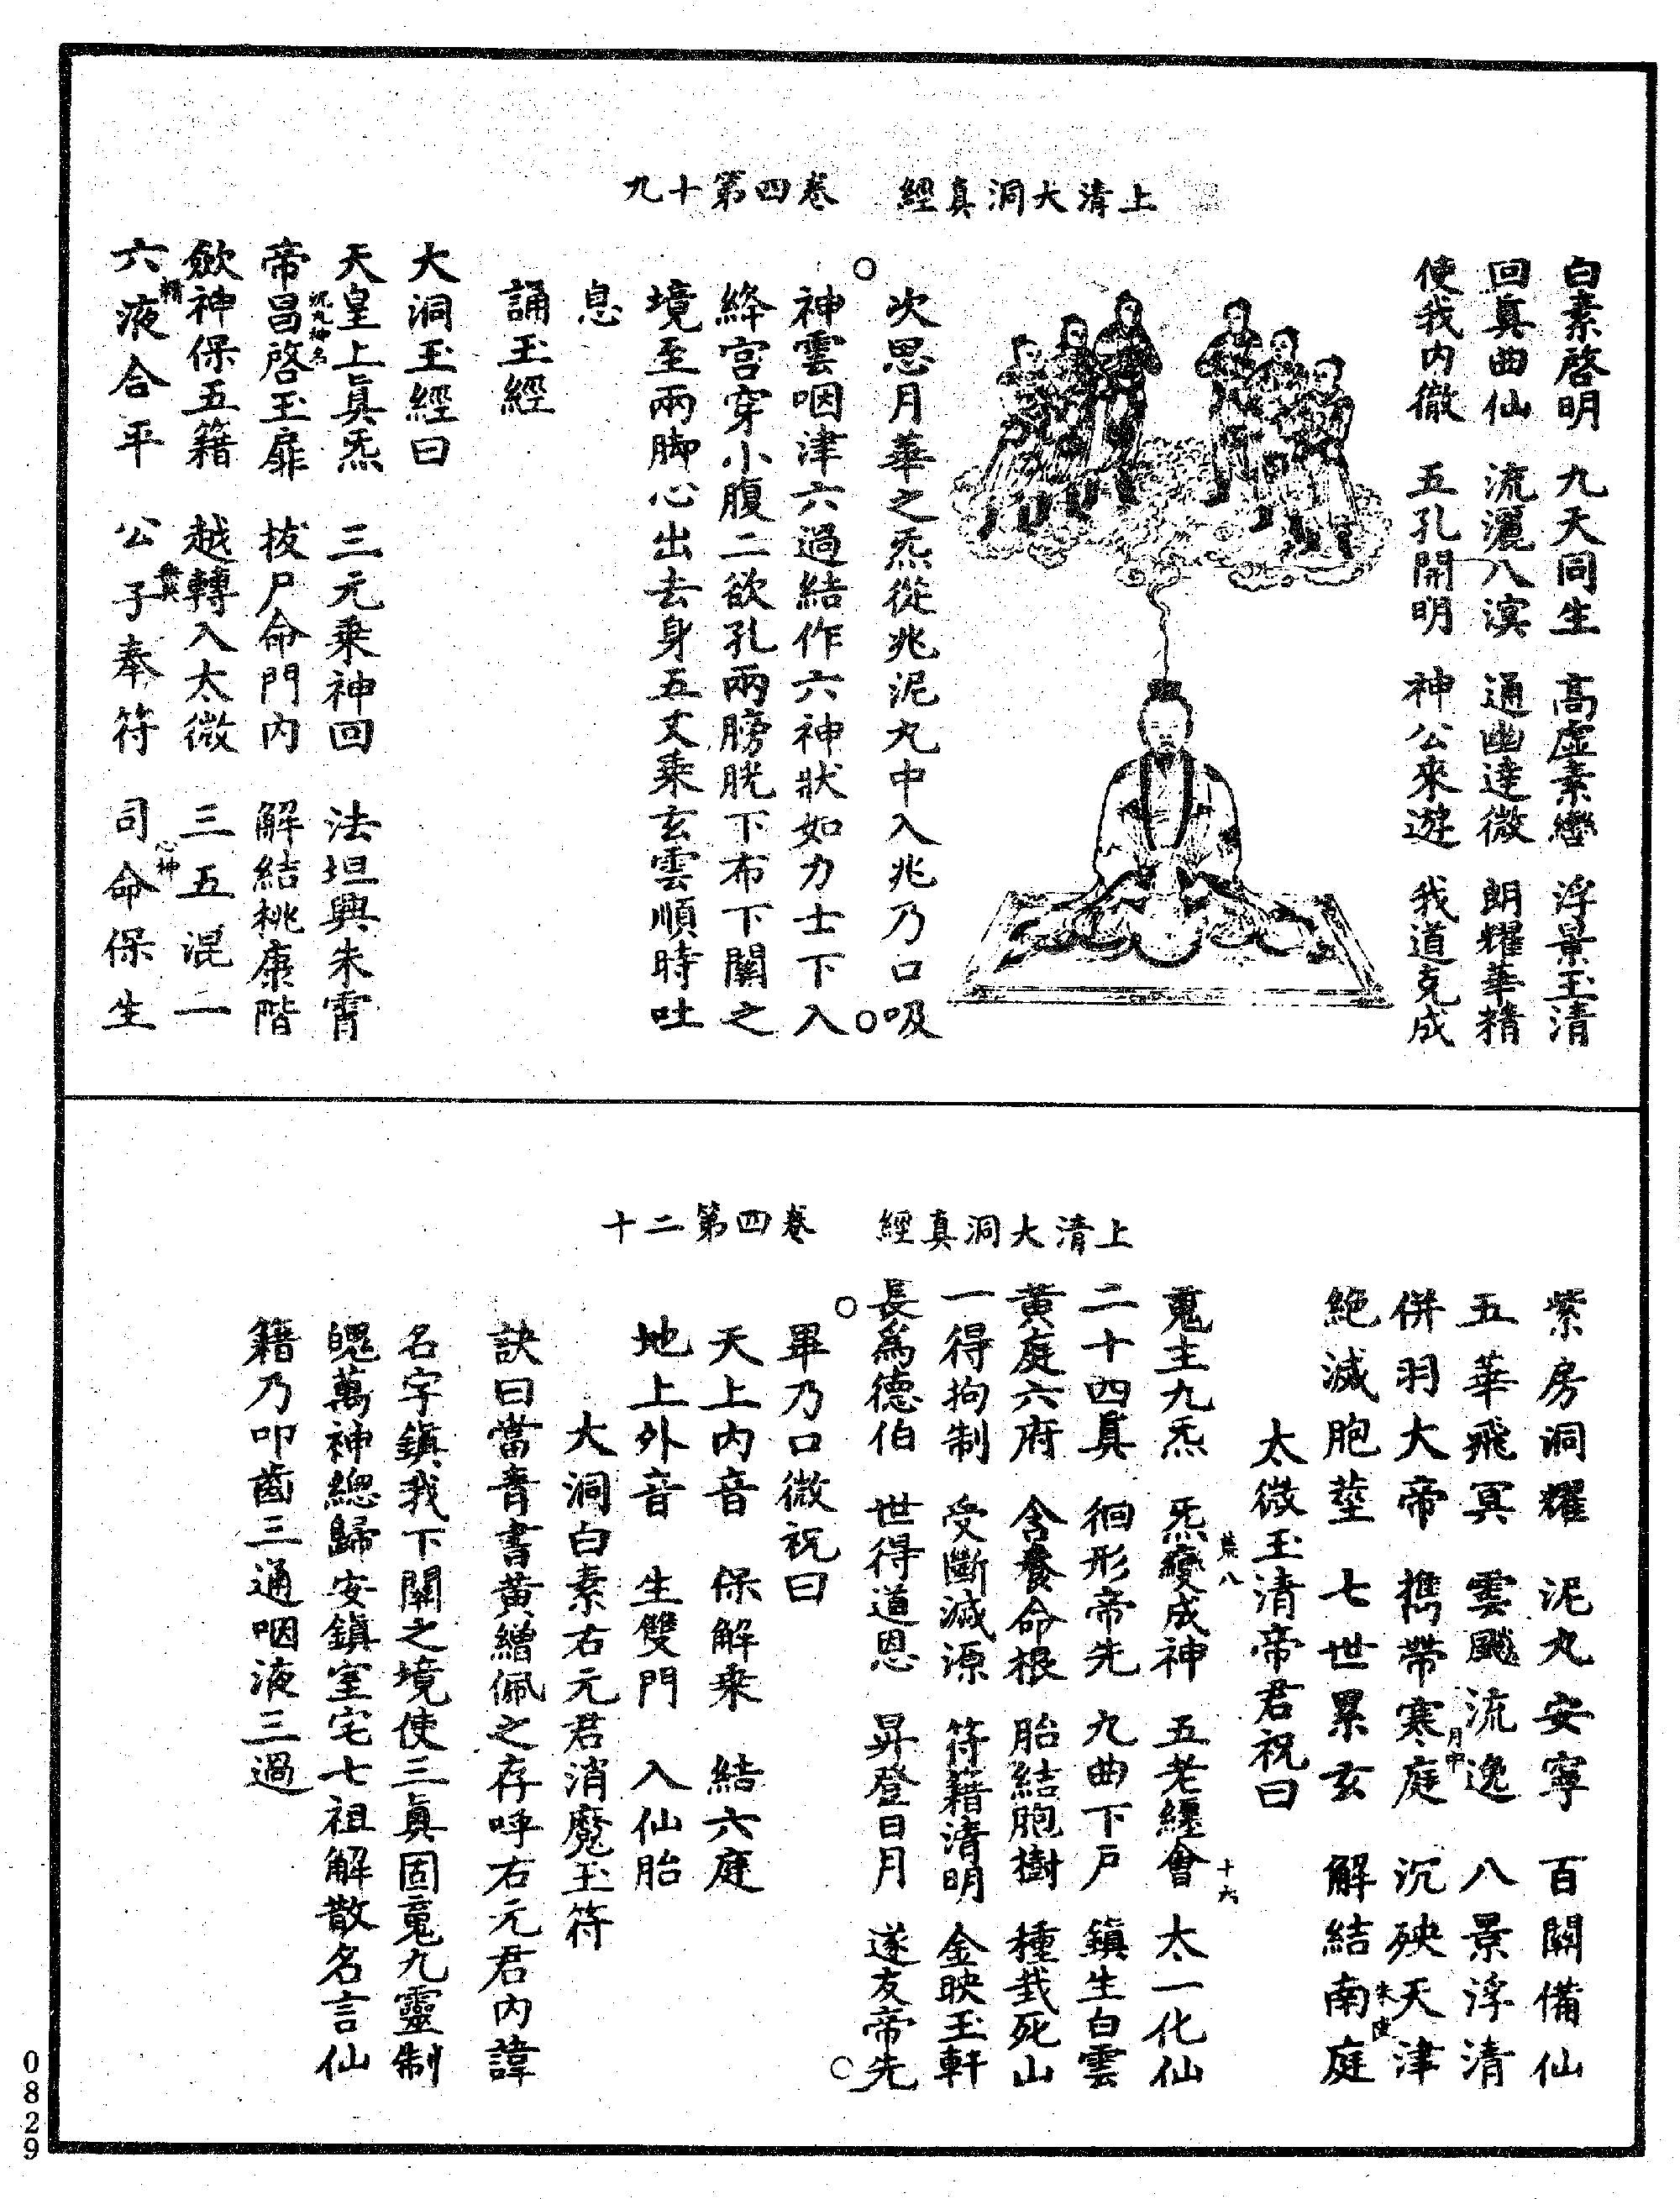 上清大洞真經　卷四第十九
白素啓明　九天同生　高虛素巒　浮景玉清
回真曲仙　流灑八溟　通幽達微　朗耀華精
使我內徹　五孔開明　神公來遊　我道克成
次思月華之炁從兆泥丸中入兆乃口吸
神雲咽津六過結作六神狀如力士下入
絳宮穿小腹二欲孔兩膀胱下布下關之
境至兩脚心出去身五丈乘玄雲順時吐
息
誦玉經
大洞玉經曰
天皇上真炁　三元乘神回　法坦興朱霄
帝昌啓玉扉　拔尸命門內　解結桃康階
歛神保五籍　越轉入太微　三五混一
六液合平　公子奉符　司命保生
精
無英
心神
上清大洞真經　卷四第二十
紫房洞耀　泥丸安寧　百關備仙
五華飛冥　雲飈流逸　八景浮清
併羽大帝　攜帶寒庭　沉殃天津
月中
絶滅胞莖　七世累玄　解結南庭
朱陵
太微玉清帝君祝曰
荒八
十六
䰟主九炁　炁變成神　五老纒會　太一化仙
二十四真　徊形帝先　九曲下戶　鎮生白雲
黃庭六府　含養命根　胎結胞樹　種栽死山
一得拘制　受斷滅源　符籍清明　金映玉軒
長爲德伯　世得道恩　昇登日月　遂友帝先
畢乃口微祝曰
天上內音　保解乘　結六庭
地上外音　生雙門　入仙胎
大洞白素右元君消魔玉符
訣曰當青書黃繒佩之存呼右元君內諱
名字鎮我下關之境使三真固䰟九靈制
魄萬神總歸安鎮室宅七祖解散名言仙
籍乃叩齒三通咽液三過
0829